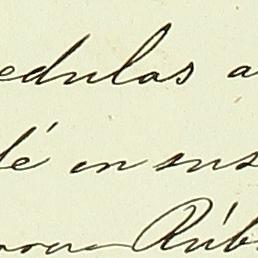 edulas a
lé en sus
Rúb